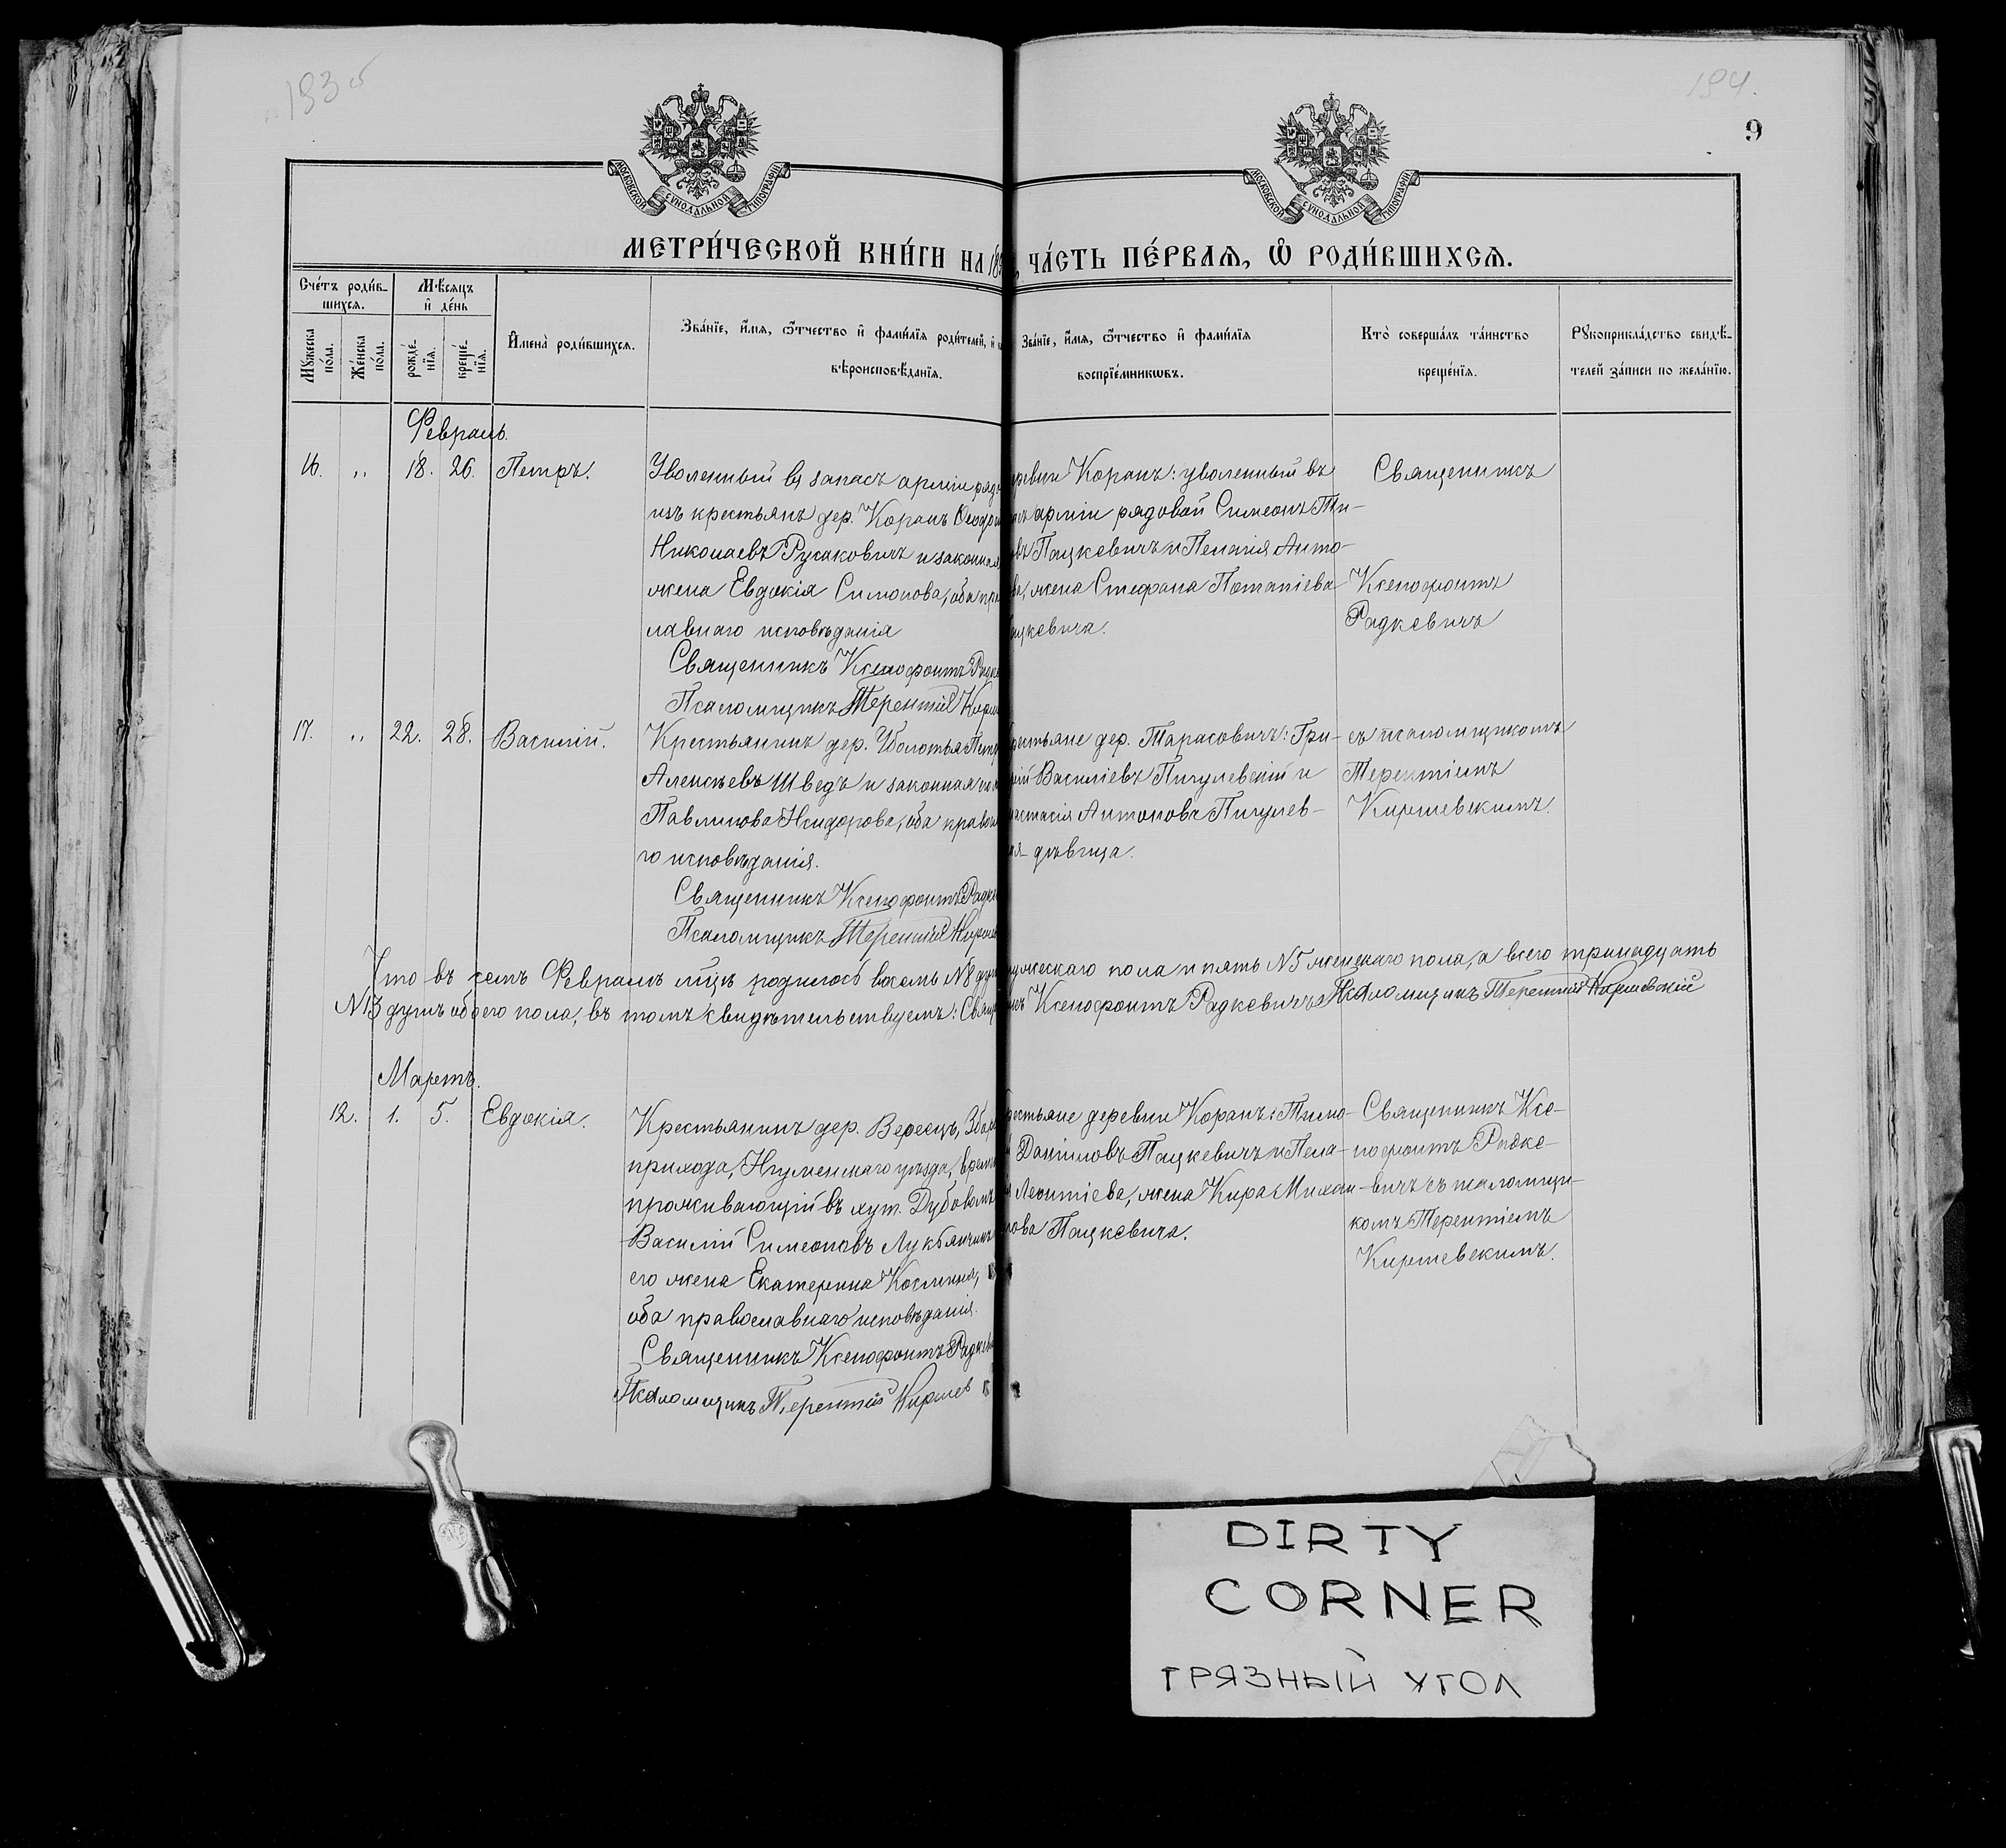 193 об
194.
9
МОСКОВСКОЙ СѴНОДАЛЬНОЙ ТИПОГРАФІИ.
МОСКОВСКОЙ СѴНОДАЛЬНОЙ ТИПОГРАФІИ.
МЕТРИ́ЧЕСКОЙ КНИ́ГИ НА 18
ЧА́СТЬ ПЕ́РВАѦ, Ѡ РОДИ́ВШИХСѦ.
Сче́тъ роди́в-
шихсѧ.
Мѣ́сѧцъ
и҆ де́нь
Мꙋ́жеска
по́ла.
Же́нска
по́ла.
рожде́-
нїѧ.
креще́-
нїѧ.
И҆мена̀ роди́вшихсѧ.
Зва́нїе, и҆́мѧ, ѻ҆́тчество и҆ фами́лїѧ роди́телей, и҆
вѣроисповѣ́данїѧ.
Зва́нїе, и҆́мѧ, ѻ҆́тчество и҆ фами́лїѧ
воспрїе́мникѡвъ.
Кто̀ соверша́лъ та́инство
креще́нїѧ.
Рꙋкоприкла́дство свидѣ́-
телей за́писи по жела́нїю.
Февраль.
16. „ 18. 26. Петръ.
Уволенный въ запасъ арміи рядо
изъ крестьянъ дер. Коранъ Ѳеодор
Николаевъ Русаковичъ и законная
жена Евдокія Симонова, оба пра
лавнаго исповѣданія
Священникъ Ксенофонтъ Радке
Псаломщикъ Терентій Кирш
ревни Коранъ: уволенный въ
асъ арміи рядовой Симеонъ Ти-
въ Пацкевичъ и Пелагія Анто-
ва, жена Стефана Потапіева
ацкевича.
Священникъ
Ксенофонтъ
Радкевичъ
17. „ 22. 28. Василій.
Крестьянинъ дер. Уболотья Петр
Алексѣевъ Шведъ и законная же
Павлинова Исидорова, оба правос
го исповѣданія.
Священникъ Ксенофонтъ Радке
Псаломщикъ Терентій Киршев
рестьяне дер. Тарасовичъ: Гри-
рій Василіевъ Пигулевскій и
настасія Антонова Пигулев-
ая дѣвица.
съ псаломщикомъ
Терентіемъ
Киршевскимъ.
Что въ семъ Февралѣ мцѣ родилось восемь N8 душ
мужескаго пола и пять N5 женскаго пола, а всего тринадцать
N13 душъ обоего пола, въ томъ свидѣтельствуемъ: Свящ
икъ Ксенофонтъ Радкевичъ Псаломщикъ Терентій Киршевскій
Мартъ.
12. 1. 5. Евдокія.
Крестьянинъ дер. Вересцъ,
прихода, Игуменскаго уѣзда, врем
проживающій въ хут. Дубовомъ
Василій Симеоновъ Лукьянчикъ
его жена Екатерина Космина,
оба православнаго исповѣданія.
Священникъ Ксенофонтъ Радкев
Псаломщикъ Терентій Киршев
рестьяне деревни Коранъ: Тимо-
Даніиловъ Пацкевичъ и Пела-
я Леонтіева, жена Кира Михаи-
лова Пацкевича.
Священникъ Ксе-
нофонтъ Радке-
вичъ съ псаломщи-
комъ Терентіемъ
Киршевскимъ.
DIRTY
CORNER
ГРЯЗНЫЙ УГОЛ